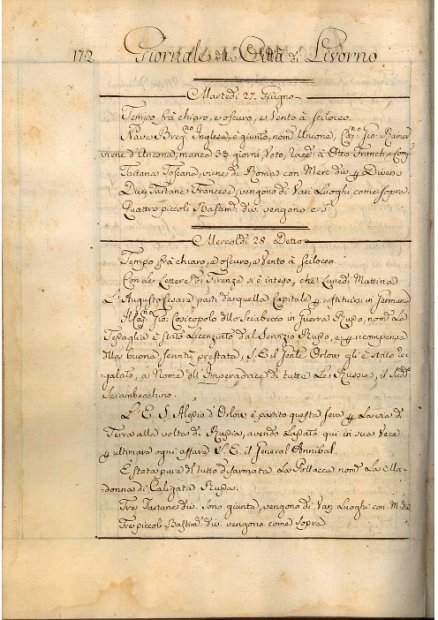 172 Giornale della Città di Livorno
Martedì 27. Giugno
Tempo frà chiaro, e oscuro, e Vento à scilocco
Nave Inglese, è giunto, nomo Unione, Capno Gio:
viene d'Ancona, manca 33 giorni, Voto, racco à Otto Franck, e Compi
Tartana Toscana, viene di Roma con Merci div. p Diversi
Dieci Tartane Francesi, vengono di Varj Luoghi come sopra
Quattro piccoli Bastimti div. vengono
Mercoldì 28 Detto
Tempo frà chiaro, e oscuro, e Vento à scilocco
Con le Lettere di Firenze si è inteso, che Lunedì Mattina
L'Augusto Cesare partì da quella Capitale p restituirsi in Germania
Al Capno Gio: dello Sciabecco in Guerra Russo, nomo La
è stato Licenziato dal Servizio Russo, e p ricompensa
della buona servitù prestata, S. E. il Conte Orlow gli è stato re-
galato, a Nome dell'Imperadrice di tutte Le Russie, il Sudo
Sciambecchino.
L'E. S. Alessio d'Orlow è partito questa sera p La via di
Terra alla volta di Russia, avendo Lasciato qui in sua Vece
p ultimare ogni affare S. E. il General Annibal.
È stata pure del tutto disarmata La Pollacca nomta La Ma-
donna di Caligata Russa.
Tre Tartane div. sono giunte, vengono di Varj Luoghi con M. div.
Tre piccoli Bastimti div. vengono come sopra